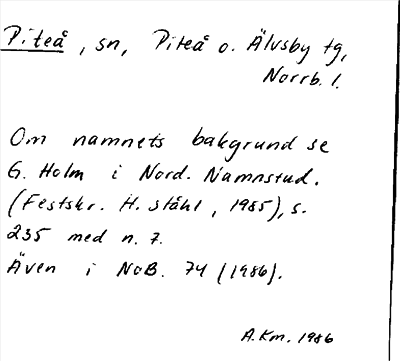 Piteå, sn, Piteå o. Älvsby tg,
Norrb. l.
Om namnets bakgrund se
G. Holm i Nord. Namnstud.
(Festskr. H. Ståhl, 1985), s.
235 med n. 7.
Även i NoB. 74 (1986).
A.Km. 1986